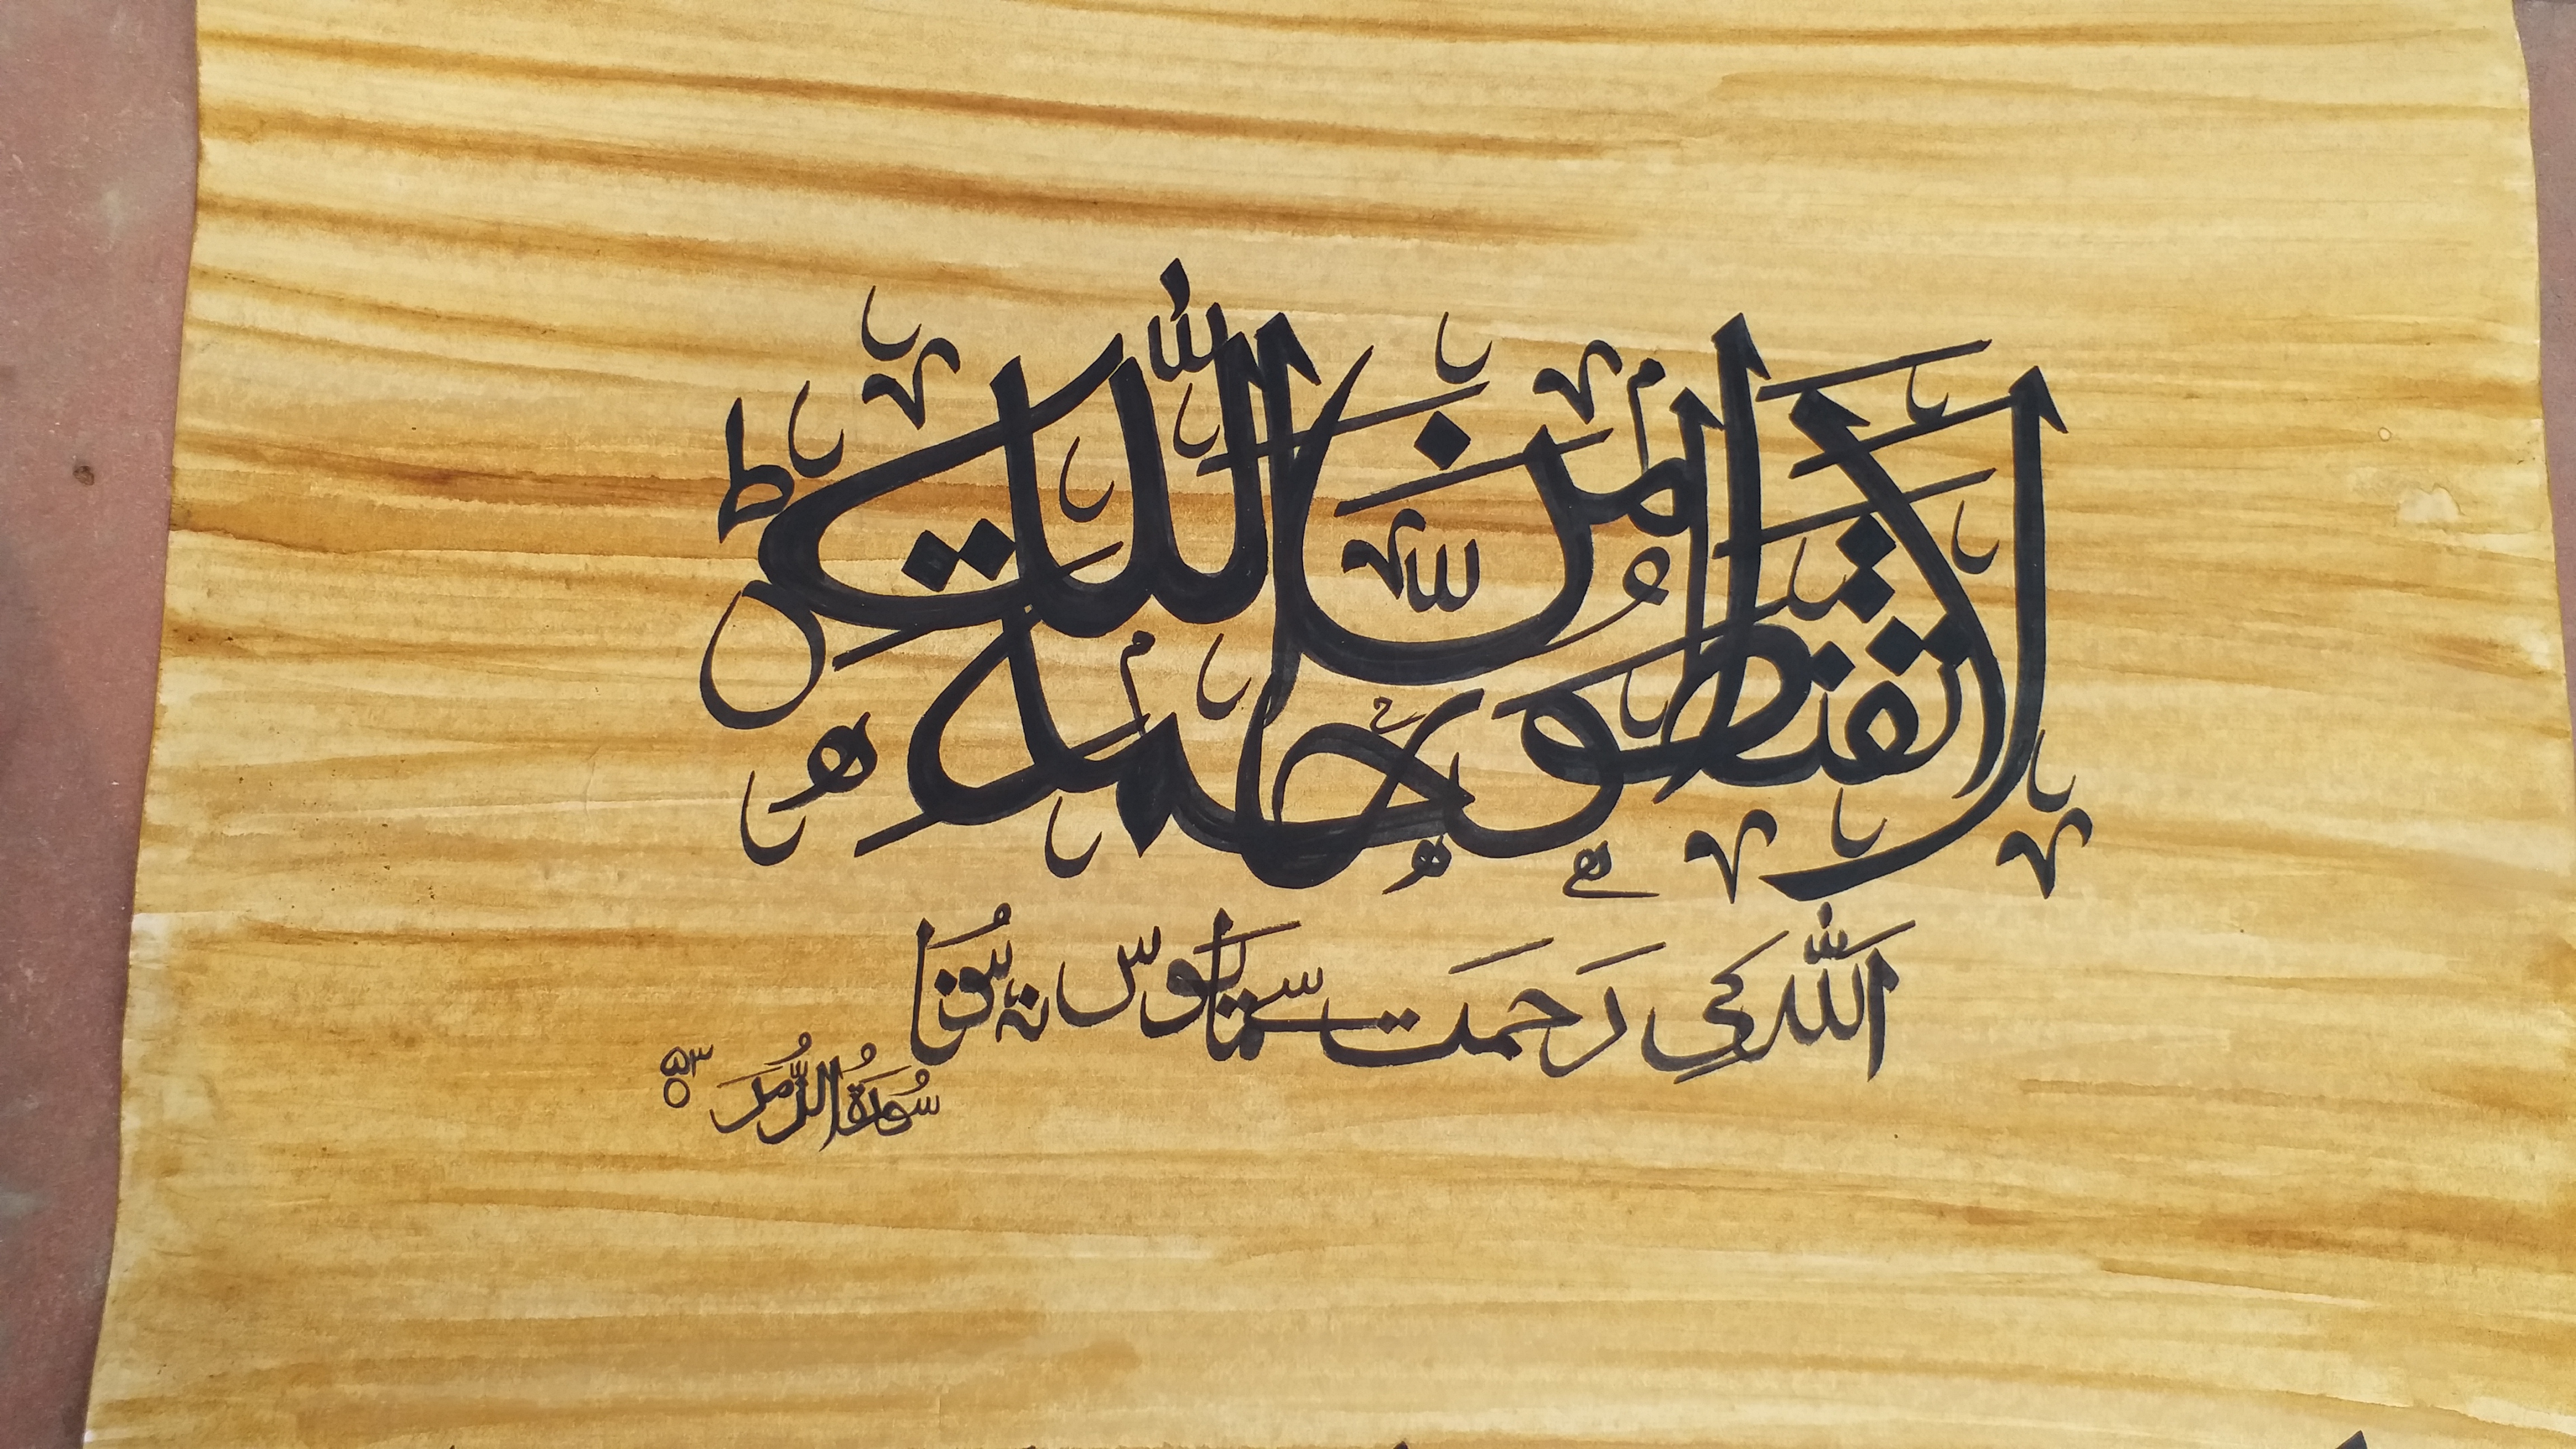 لَا تَقْنَطُوا مِنْ رَحْمَةِ اللّٰهِ
اللّٰہ کی رَحمَت سے مَایُوس نہ ہُونا
سُورَۃُ الزُّمَر ۵۳